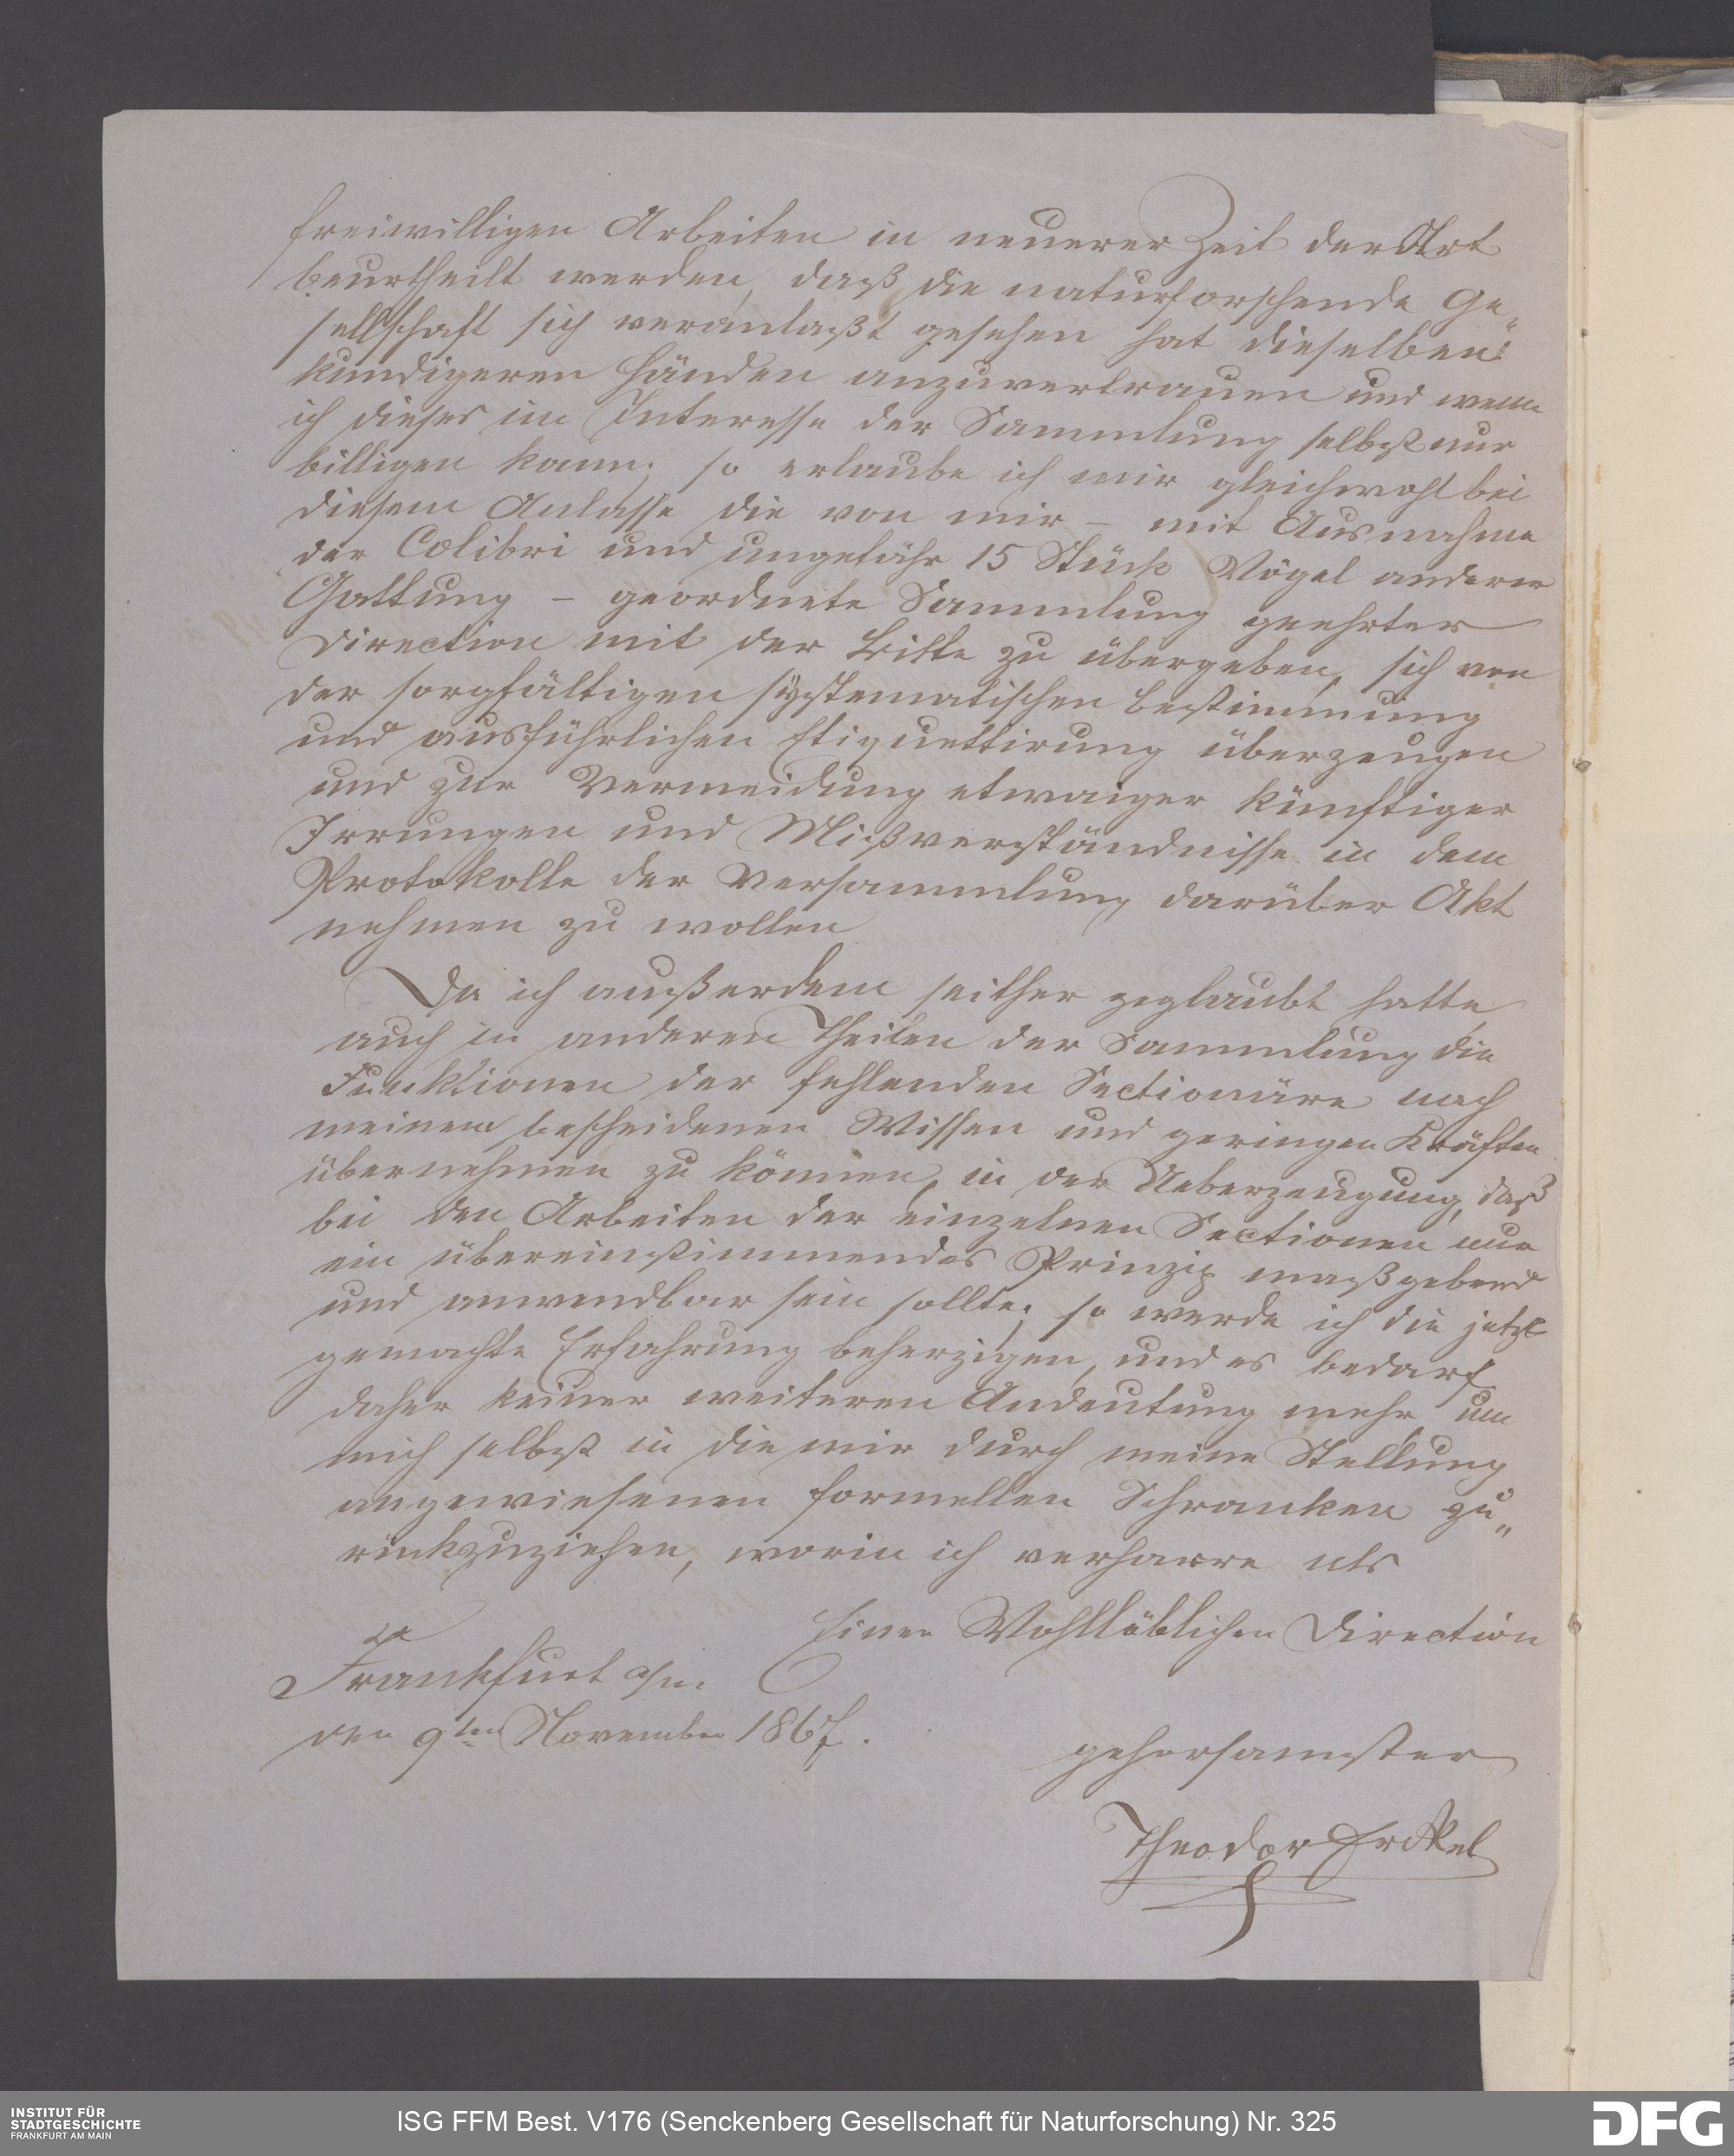 freiwilligen Arbeiten in neuerer Zeit der Art
beurtheilt werden, daß die naturforschende Ge„
sellschaft sich veranlaßt gesehen hat dieselben
kundigeren Händen anzuvertrauen und wenn
ich dieses im Interesse der Sammlung selbst nur
billigen kann; so erlaube ich mir gleichwohl bei
diesem Anlasse die von mir – mit Ausnahme
der Colibri und ungefähr 15 Stück Vögel anderer
Gattung – geordnete Sammlung geehrter
Direction mit der Bitte zu übergeben, sich von
der sorgfältigen systematischen Bestimmung
und ausführlichen Etiquettirung überzeugen
und zur Vermeidung etwaiger künftiger
Irrungen und Mißverständnisse in dem
Protokolle der Versammlung darüber Akt
nehmen zu wollen
Da ich außerdem seither geglaubt hatte
auch in anderen Theilen der Sammlung die
Funktionen der fehlenden Sectionäre nach
meinem bescheidenen Wissen und geringen Kräften
übernehmen zu können, in der Ueberzeugung, daß
bei den Arbeiten der einzelnen Sectionen nur
ein übereinstimmendes Prinzip maßgebend
und anwendbar sein sollte; so werde ich die jetzt
gemachte Erfahrung beherzigen, und es bedarf
daher keiner weiteren Andeutung mehr um
mich selbst in die mir durch meine Stellung
angewiesenen formellen Schranken zu„
rückzuziehen, worin ich verharre als
Einer Wohllöblichen Direction
Frankfurt a/m
den 9ten November 1867.
gehorsamster
Theodor Erckel
INSTITUT FÜR
STADTGESCHICHTE
FRANKFURT AM MAIN
ISG FFM Best. V176 (Senckenberg Gesellschaft für Naturforschung) Nr. 325
DFG